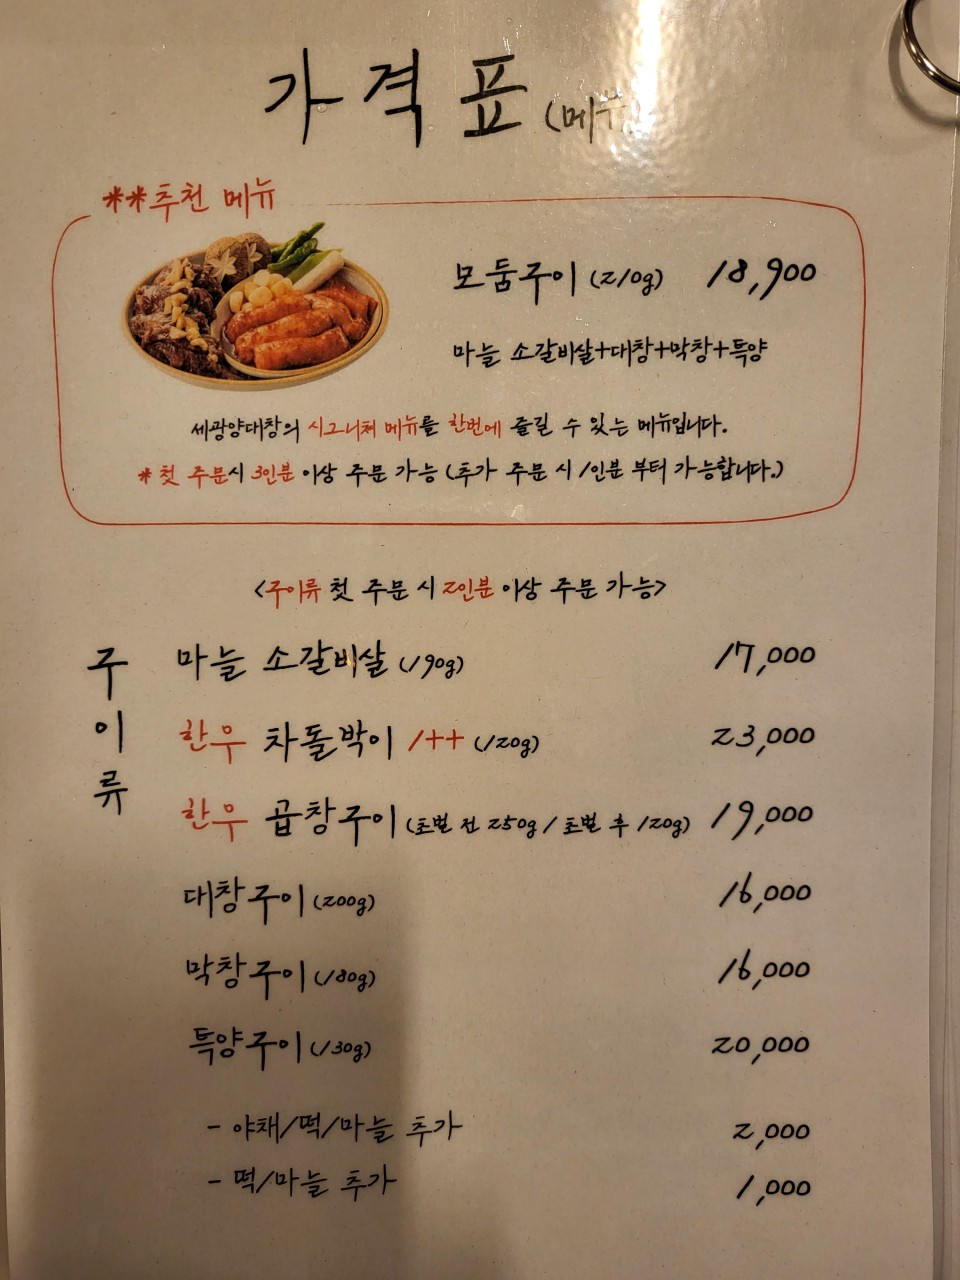 가격표 (메뉴)
**추천 메뉴
모둠구이 (210g) 18,900
마늘 소갈비살+대창+막창+특양
세광양대창의 시그니처 메뉴를 한번에 즐길 수 있는 메뉴입니다.
*첫 주문시 3인분 이상 주문 가능 (추가 주문 시 1인분 부터 가능합니다.)
<구이류 첫 주문 시 2인분 이상 주문 가능>
구이류
마늘 소갈비살 (190g) 17,000
한우 차돌박이 1++ (120g) 23,000
한우 곱창구이 (초벌 전 250g / 초벌 후 120g) 19,000
대창구이 (200g) 16,000
막창구이 (180g) 16,000
특양구이 (130g) 20,000
- 야채/떡/마늘 추가 2,000
- 떡/마늘 추가 1,000